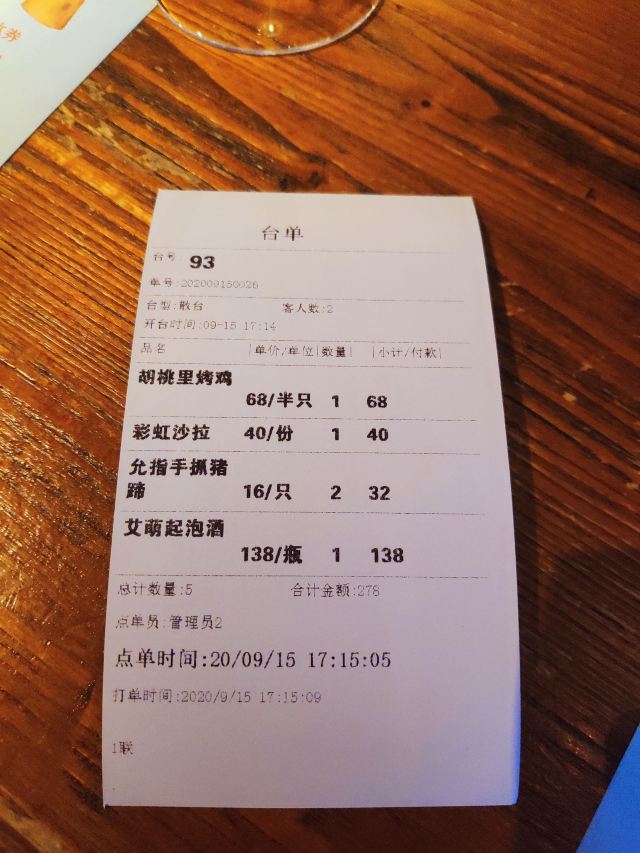 券
台单
台号 93
单号:202009150026
台型:散台 客人数:2
开台时间:09-15 17:14
品名 |单价/单位|数量| |小计/付款|
胡桃里烤鸡
68/半只 1 68
彩虹沙拉 40/份 1 40
允指手抓猪
蹄 16/只 2 32
艾萌起泡酒
138/瓶 1 138
总计数量:5 合计金额:278
点单员:管理员2
点单时间:20/09/15 17:15:05
打单时间:2020/9/15 17:15:09
1联